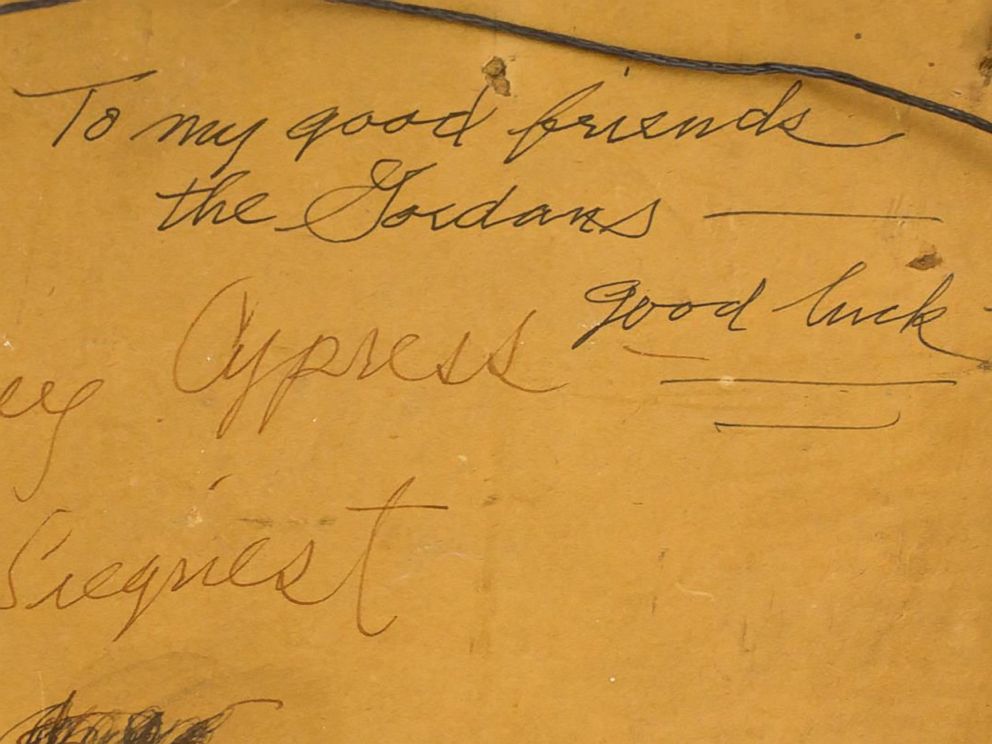 To my good friends
the Gordans —
good luck -
Cypress
Siegriest